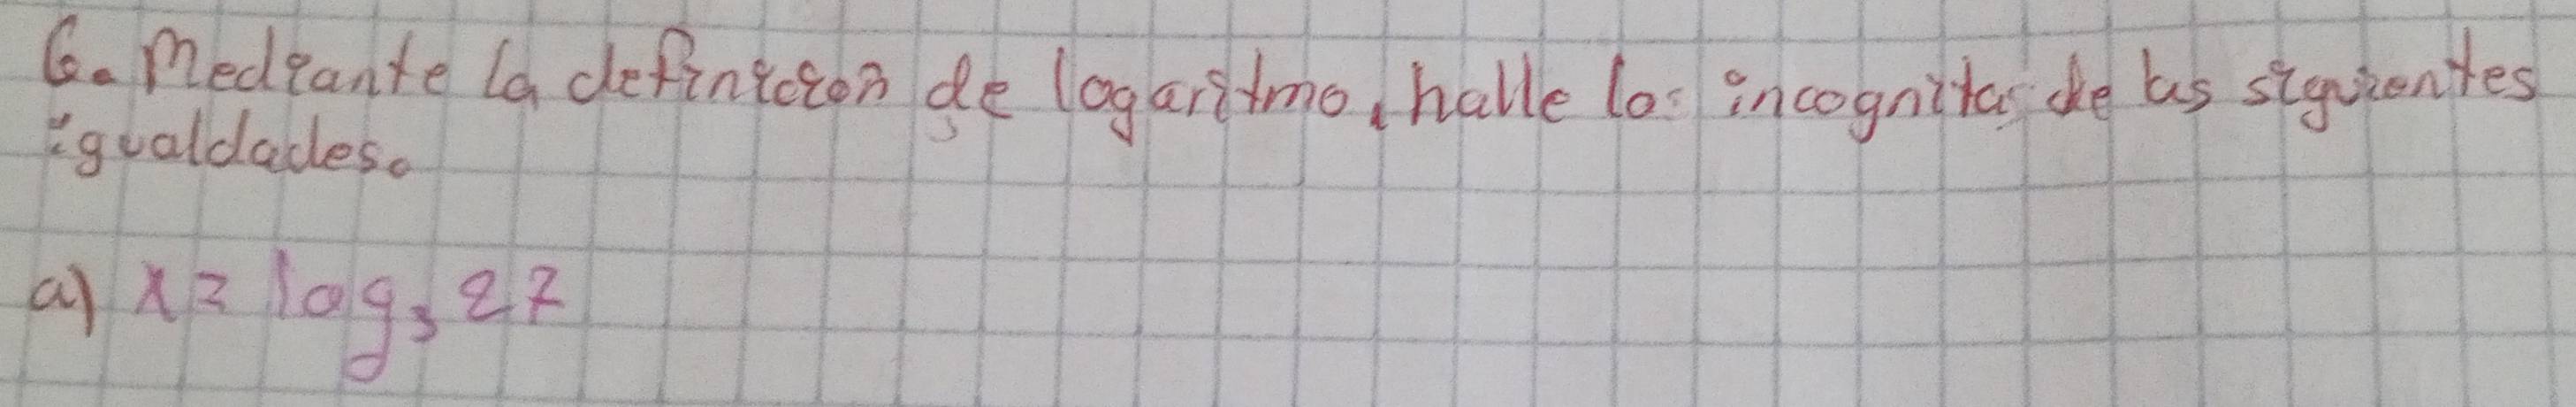 6. Mediante la definicion de logaritmo, halle las incognitas de las siguientes
igualdades.
a) x = log₃ 27